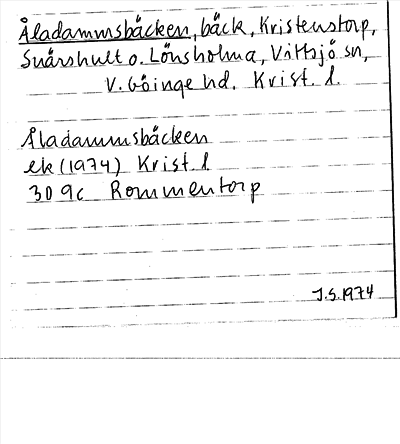 Åladammsbäcken, bäck, Kristenstorp,
Snårshult o. Lönsholma, Vittsjö sn,
V. Göinge hd. Krist. l.
Åladammsbäcken
ek (1974) Krist. l
3D 9c Rommentorp
J.S. 1974